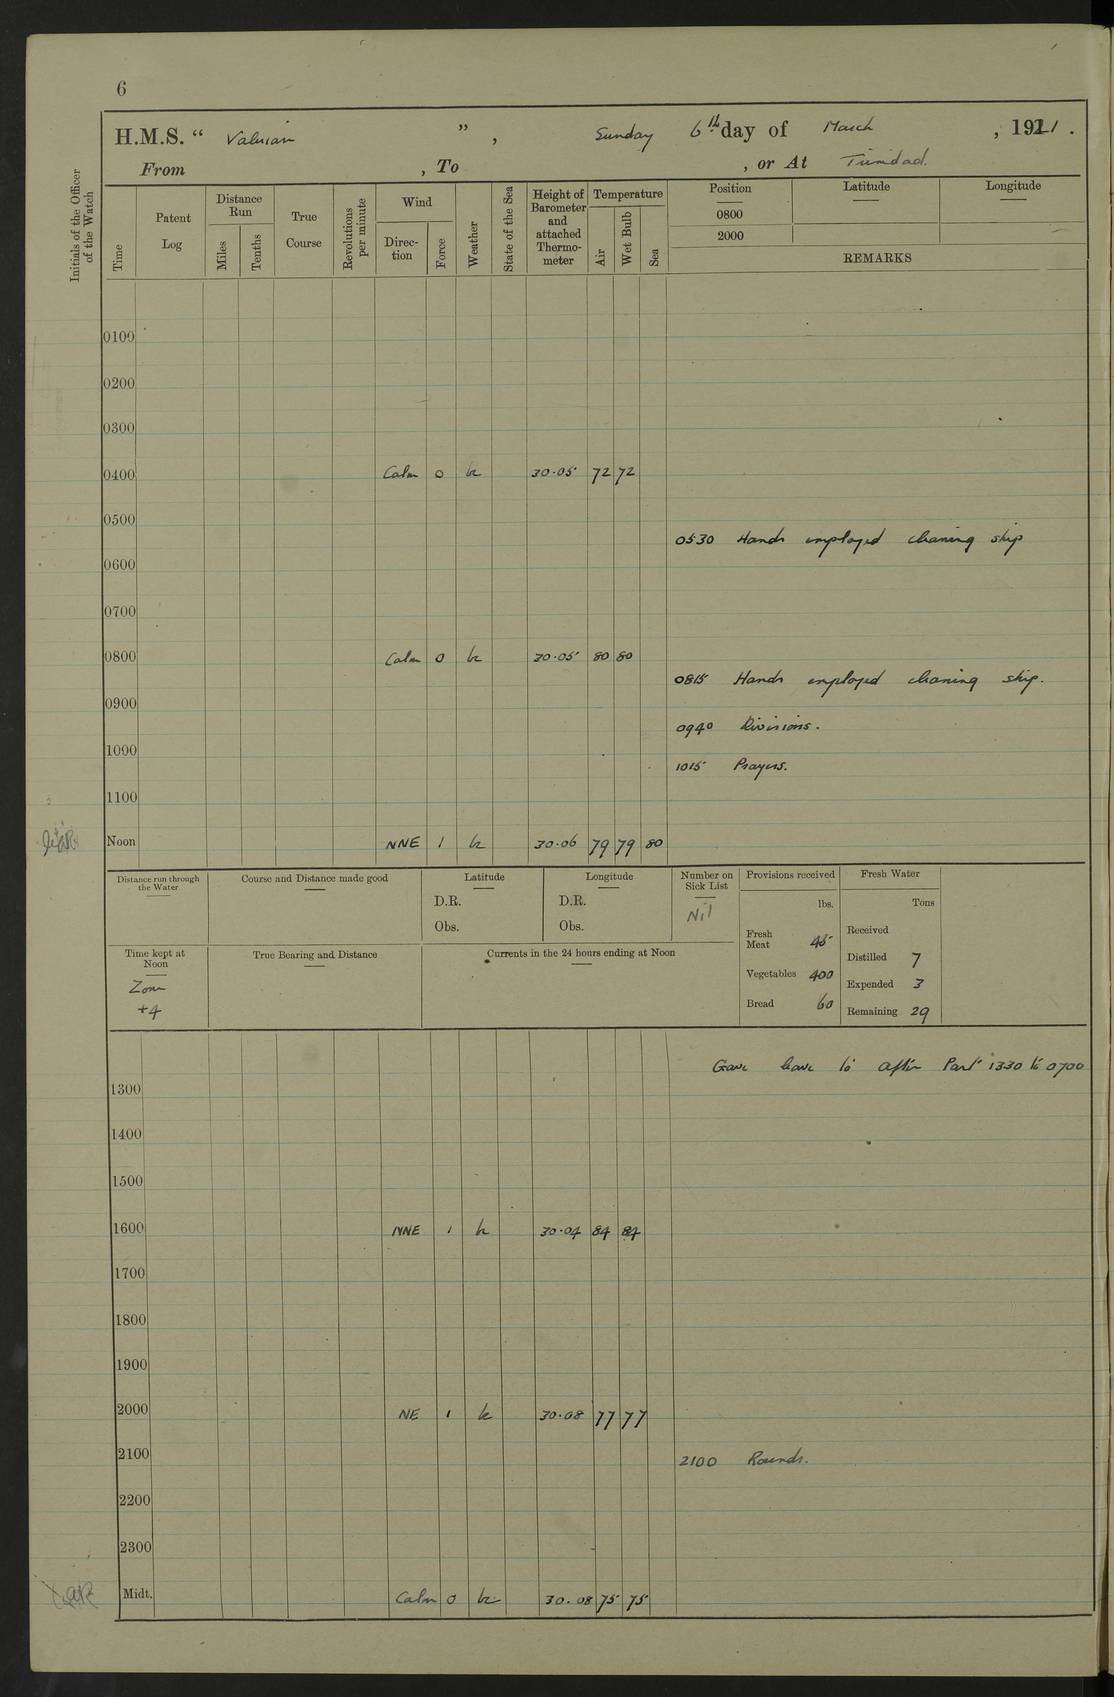 6
H.M.S. “ Valerian ” , Sunday 6th day of March , 1921 .
From , To , or At Trinidad.
Initials of the Officer of the Watch
Time
Patent Log
Distance Run
Miles
Tenths
True Course
Revolutions per minute
Wind
Direc-tion
Force
Weather
State of the Sea
Height of Barometer and attached Thermo-meter
Temperature
Air
Wet Bulb
Sea
Position Latitude Longitude
0800
2000
REMARKS
0100
0200
0300
0400 Calm 0 bc 30.05 72 72
0500
0530 Hands employed cleaning ship
0600
0700
0800 Calm 0 bc 30.05 80 80
0815 Hands employed cleaning ship.
0900
0940 Divisions.
1000
1015 Prayers.
1100
Noon NNE 1 bc 30.06 79 79 80
Distance run through the Water
Course and Distance made good
Latitude
D.R.
Obs.
Longitude
D.R.
Obs.
Number on Sick List
Nil
Provisions received
lbs.
Fresh Meat 45
Vegetables 400
Bread 60
Fresh Water
Tons
Received
Distilled 7
Expended 3
Remaining 29
Time kept at Noon
Zone
+4
True Bearing and Distance
Currents in the 24 hours ending at Noon
Gave leave to after Part 1330 to 0700
1300
1400
1500
1600 NNE 1 bc 30.04 84 84
1700
1800
1900
2000 NE 1 bc 30.08 77 77
2100
2100 Rounds.
2200
2300
Midt. Calm 0 bc 30.08 75 75